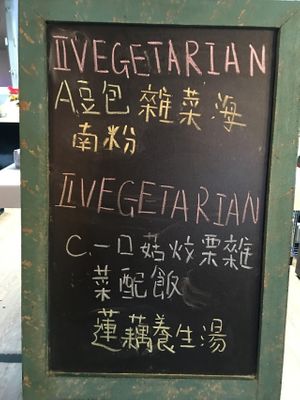 II VEGETARIAN
A豆包雜菜海
南粉
II VEGETARIAN
C.一口菇炆栗雜
菜配飯
蓮藕養生湯